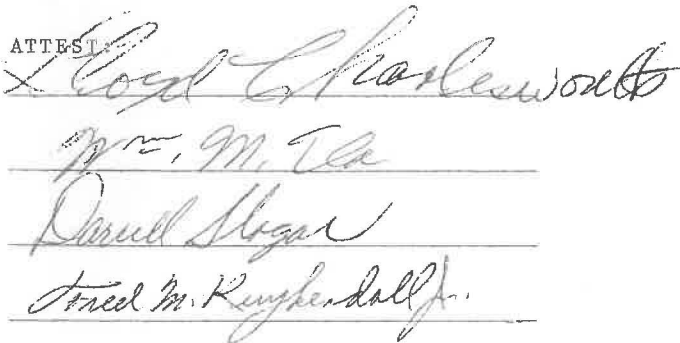 ATTEST:
Lloyd Charlesworth
Wm. M.
Darrell
Fred M. Kuykendall Jr.